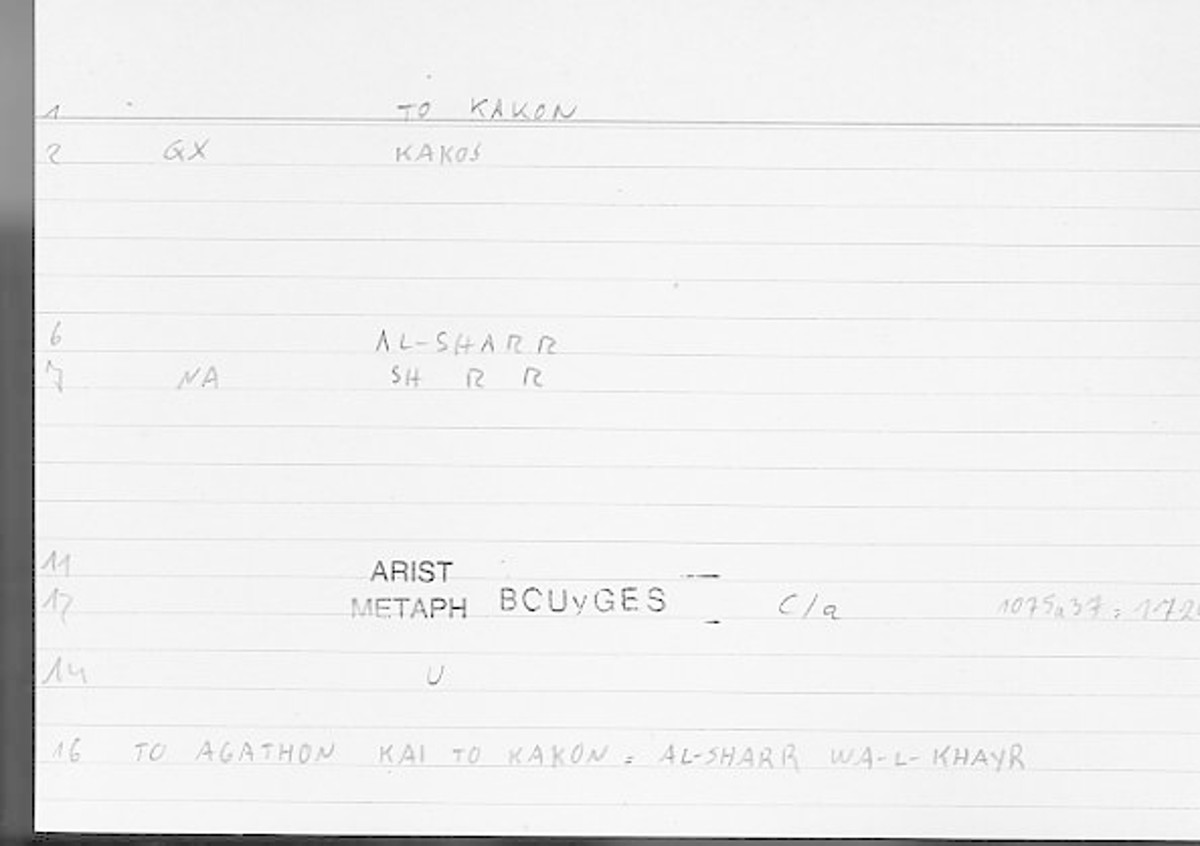 1 TO KAKON
2 GX KAKOS
6 AL-SHARR
7 NA SH R R
11 ARIST
12 METAPH BCUyGES C/a 1075a37 : 172
14 U
16 TO AGATHON KAI TO KAKON = AL-SHARR WA-L-KHAYR